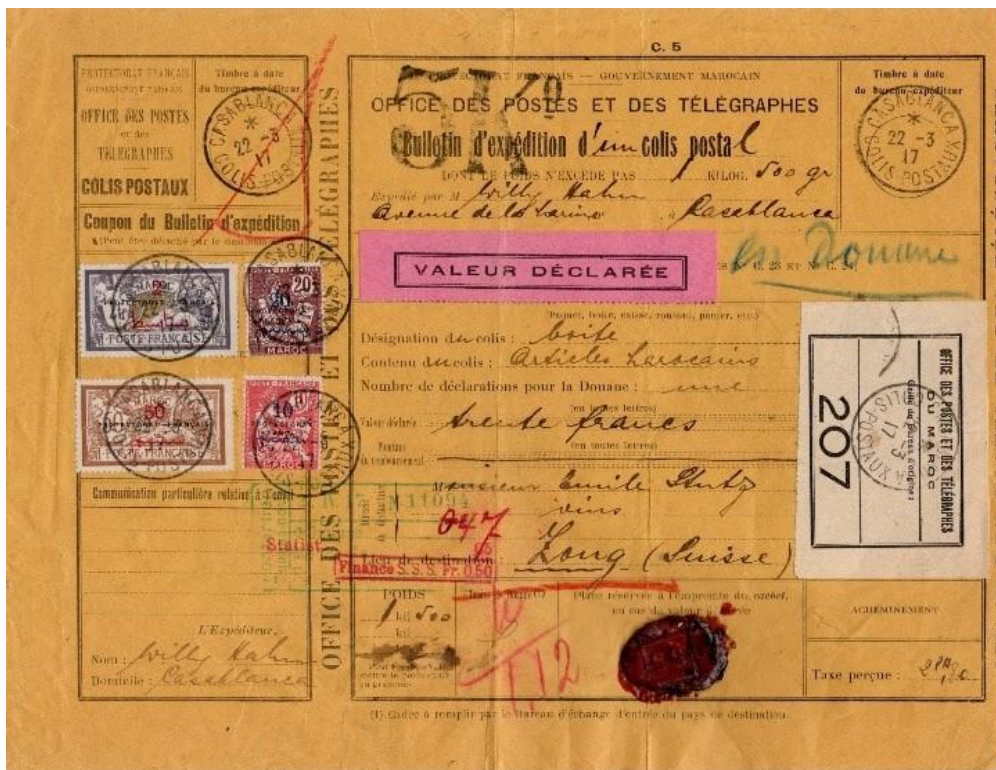 C. 5
PROTECTORAT FRANÇAIS
GOUVERNEMENT MAROCAIN
OFFICE DES POSTES
et des
TÉLÉGRAPHES
COLIS POSTAUX
Timbre à date
du bureau expéditeur
CASABLANCA
22 -3
17
COLIS-POSTAUX
Coupon du Bulletin d'expédition
(Peut être détaché par le destinataire)
2
PROTECTORAT FRANÇAIS
POSTE FRANÇAISE
20
MAROC
MAROC
50
PROTECTORAT FRANÇAIS
POSTE FRANÇAISE
10
MAROC
Communication particulière relative à l'envoi
Statist
L'Expéditeur,
Nom : Willy Hahn
Domicile : Casablanca
OFFICE DES POSTES ET DES TÉLÉGRAPHES
PROTECTORAT FRANÇAIS — GOUVERNEMENT MAROCAIN
OFFICE DES POSTES ET DES TÉLÉGRAPHES
Bulletin d'expédition d'un colis postal
DONT LE POIDS N'EXCÈDE PAS 1 KILOG. 500 gr
Expédié par M Willy Hahn
Avenue de la à Casablanca
Timbre à date
du bureau expéditeur
CASABLANCA
22 -3
17
COLIS-POSTAUX
5K
VALEUR DÉCLARÉE
Nº C. 23 ET Nº C. 24
en Douane
(Paquet, boîte, caisse, rouleau, panier, etc.)
Désignation du colis : boite
Contenu du colis : Articles Marocains
Nombre de déclarations pour la Douane : une
(en toutes lettres)
Valeur déclarée trente francs
(en toutes lettres)
Montant
du remboursement
Monsieur Emile Stutz
vins
Lieu de destination : Zoug (Suisse)
N 11094
047
Finance S.S.S. Fr. 0.50
OFFICE DES POSTES ET DES TÉLÉGRAPHES
DU MAROC
207
17
COLIS-POSTAUX
POIDS
1 kil 500
kil
Place réservée à l'empreinte du cachet,
en cas de valeur déclarée
ACHEMINEMENT
Taxe perçue :
112
(1) Cadre à remplir par le Bureau d'échange d'entrée du pays de destination.